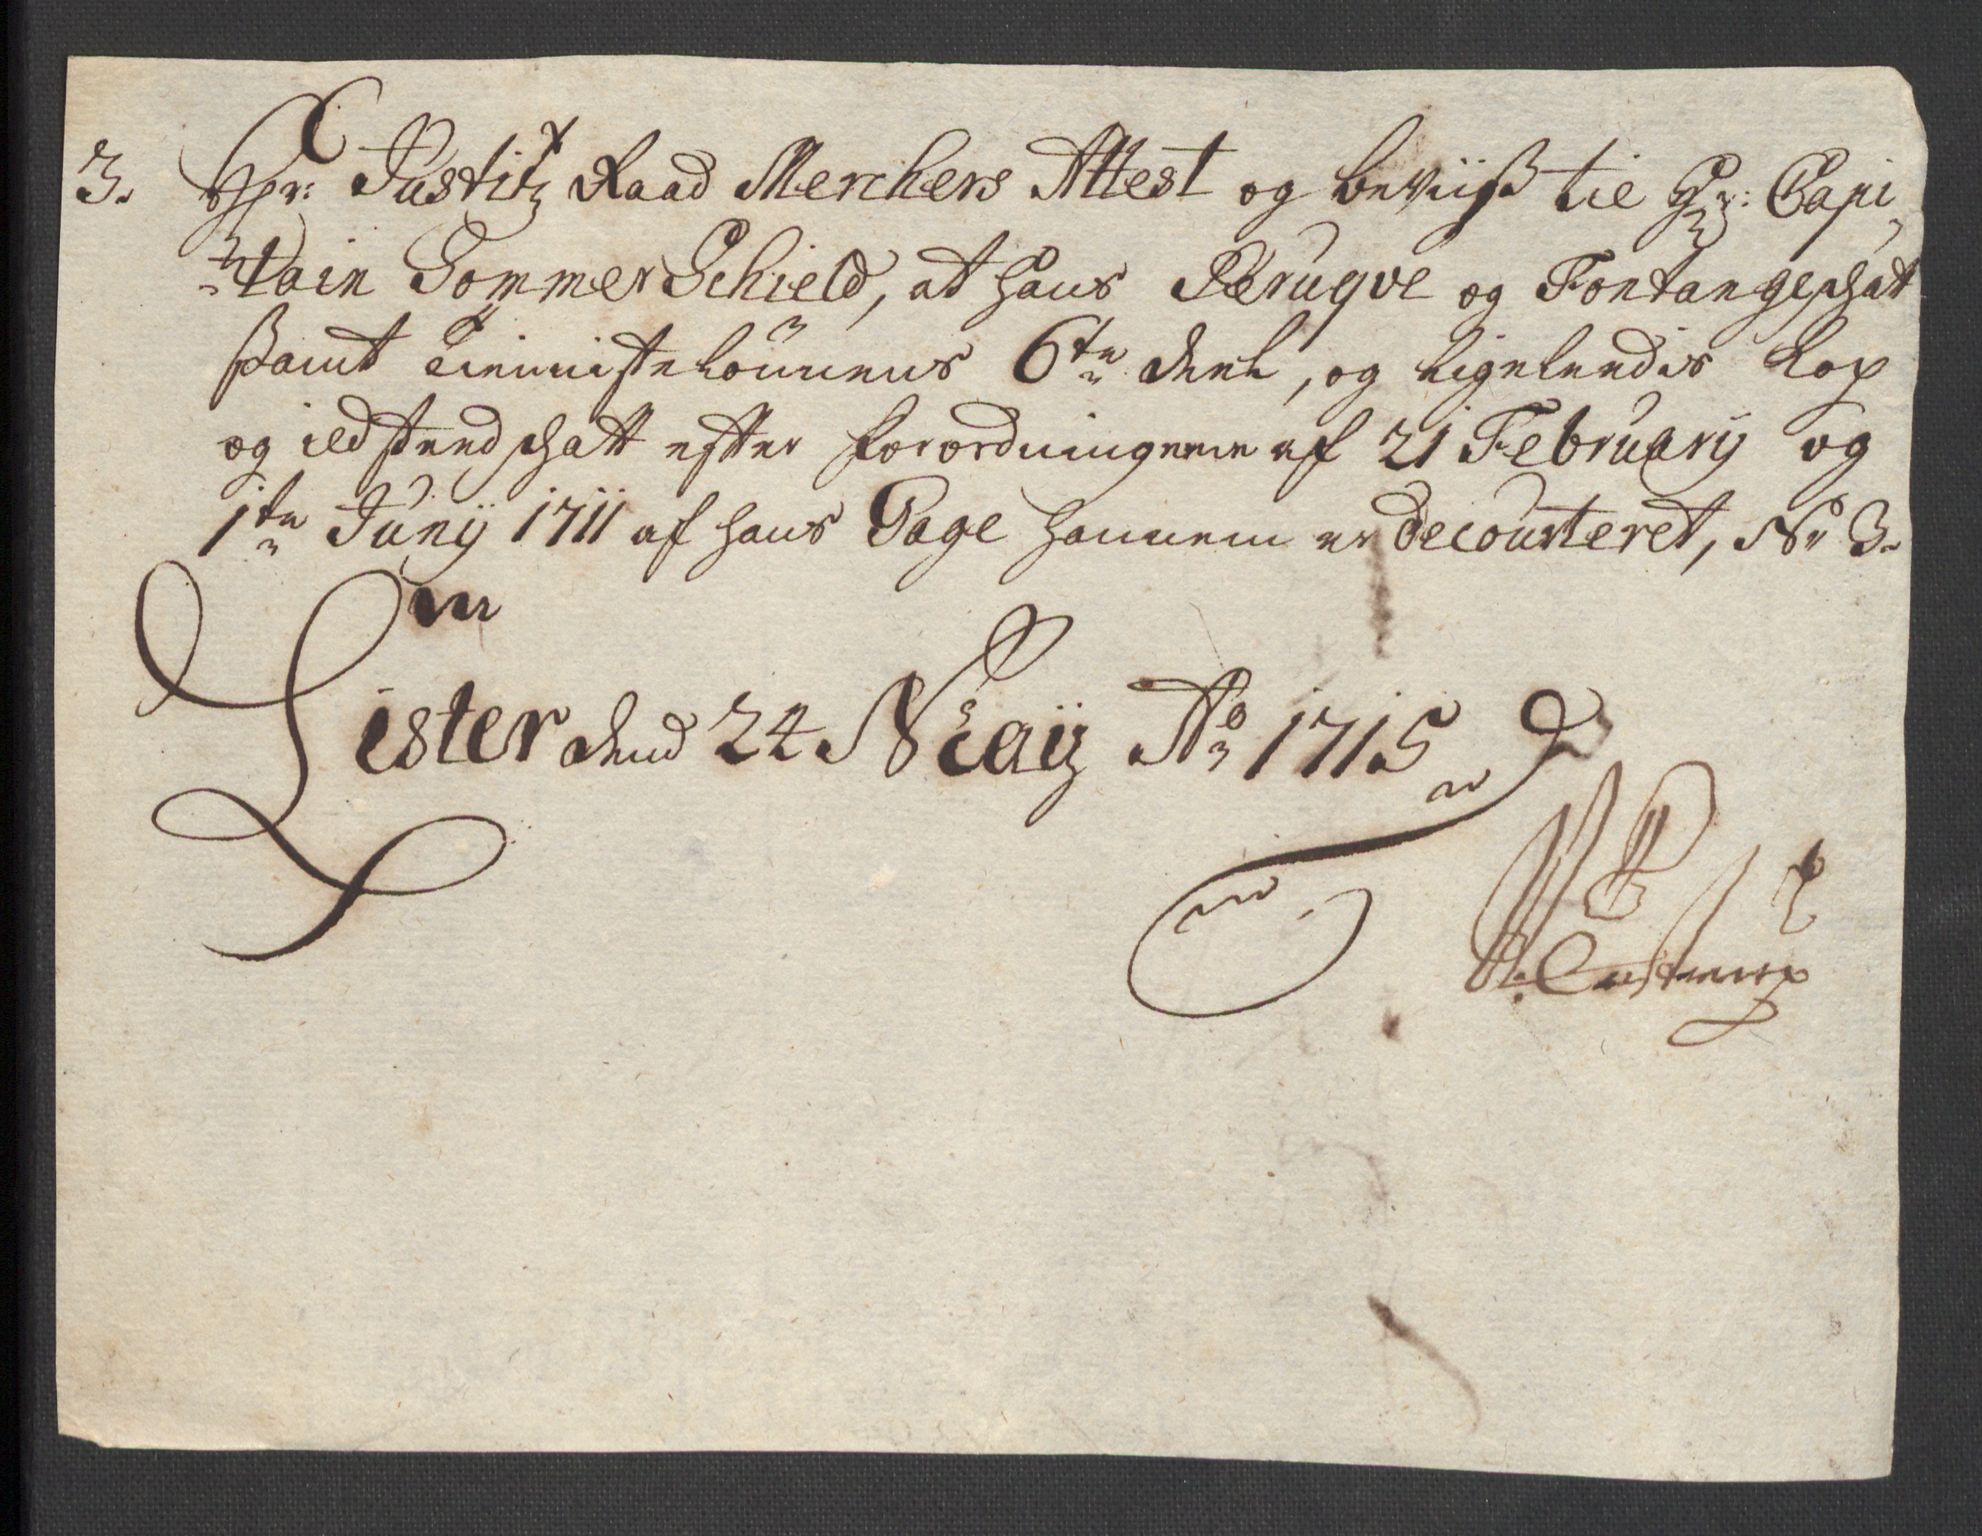 3. Hr: Justitz Raad Merchers Attest og beviiß til Hr: Capi-
tain Sommer Schield, at hans Peruqve og Fontangeschat
samt Tiennistelönnens 6te deel, og ligeleedis Kop
og ildsteedschatt efter forordningerne af 21 February og
1te Junij 1711 af hans Gage hannem er decourteret, No 3.
Lister dend 24 Maij Ao 1715